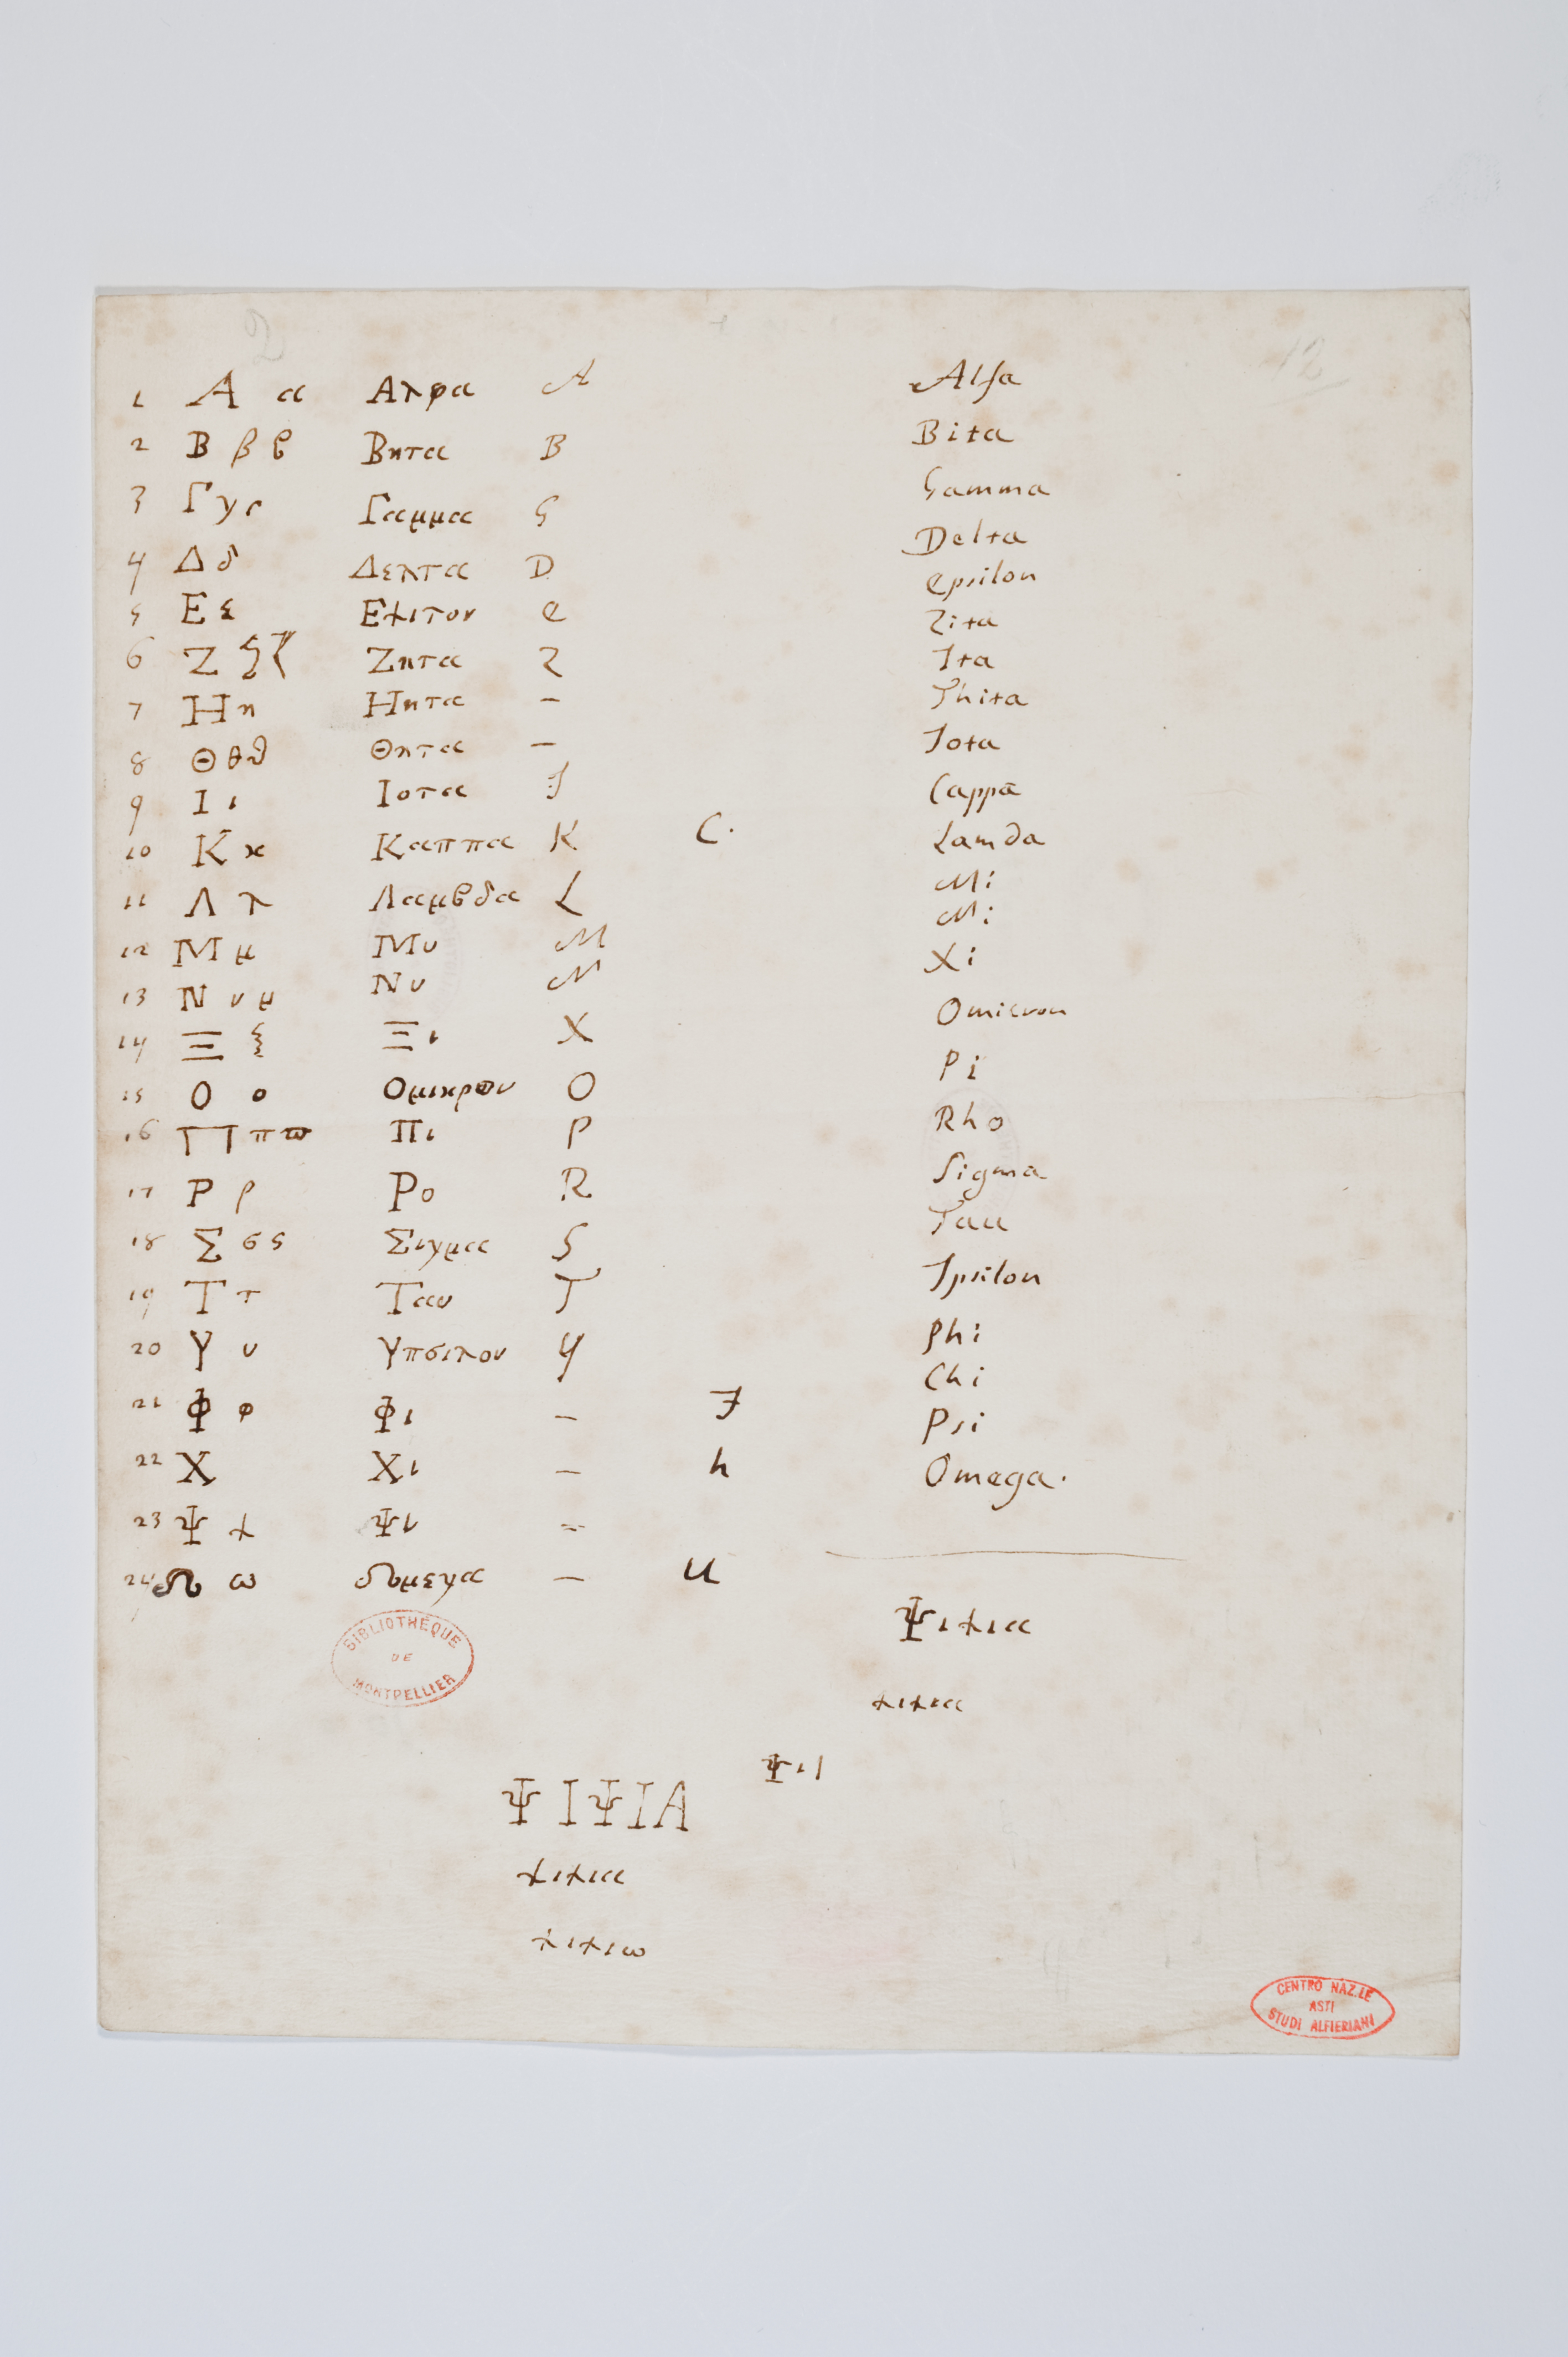 2 12
1 Α α Αλφα A Alfa
2 Β β ϐ Βητα B Bita
3 Γ γ Γαμμα G Gamma
4 Δ δ Δελτα D Delta
5 Ε ε Εψιτον e epsilon
6 Ζ ζ Ζητα Z Zita
7 Η η Ηητα – Ita
8 Θ θ ϑ Θητα – Thita
9 Ι ι Ιοτα J Iota
10 Κ κ Καππα K C. Cappa
11 Λ λ Λαμϐδα L Lamda
12 Μ μ Μυ M Mi
13 Ν ν μ Νυ N Ni
14 Ξ ξ Ξι X Xi
15 Ο ο Ομικρον O Omicron
16 Π π ϖ Πι P Pi
17 Ρ ρ Ρο R Rho
18 Σ σ ς Σιγμα S Sigma
19 Τ τ Ταυ T Tau
20 Υ υ Υπσιλον Y Ipsilon
21 Φ φ Φι – F Phi
22 Χ Χι – h Chi
23 Ψ ψ Ψι = Psi
24 Ω ω Ωμεγα – U Omega.
BIBLIOTHÈQUE
DE
MONTPELLIER
Ψιψια
ψιψια
Ψιι
ΨΙΨΙΑ
ψιψια
ψιψιω
CENTRO NAZ.LE
ASTI
STUDI ALFIERIANI